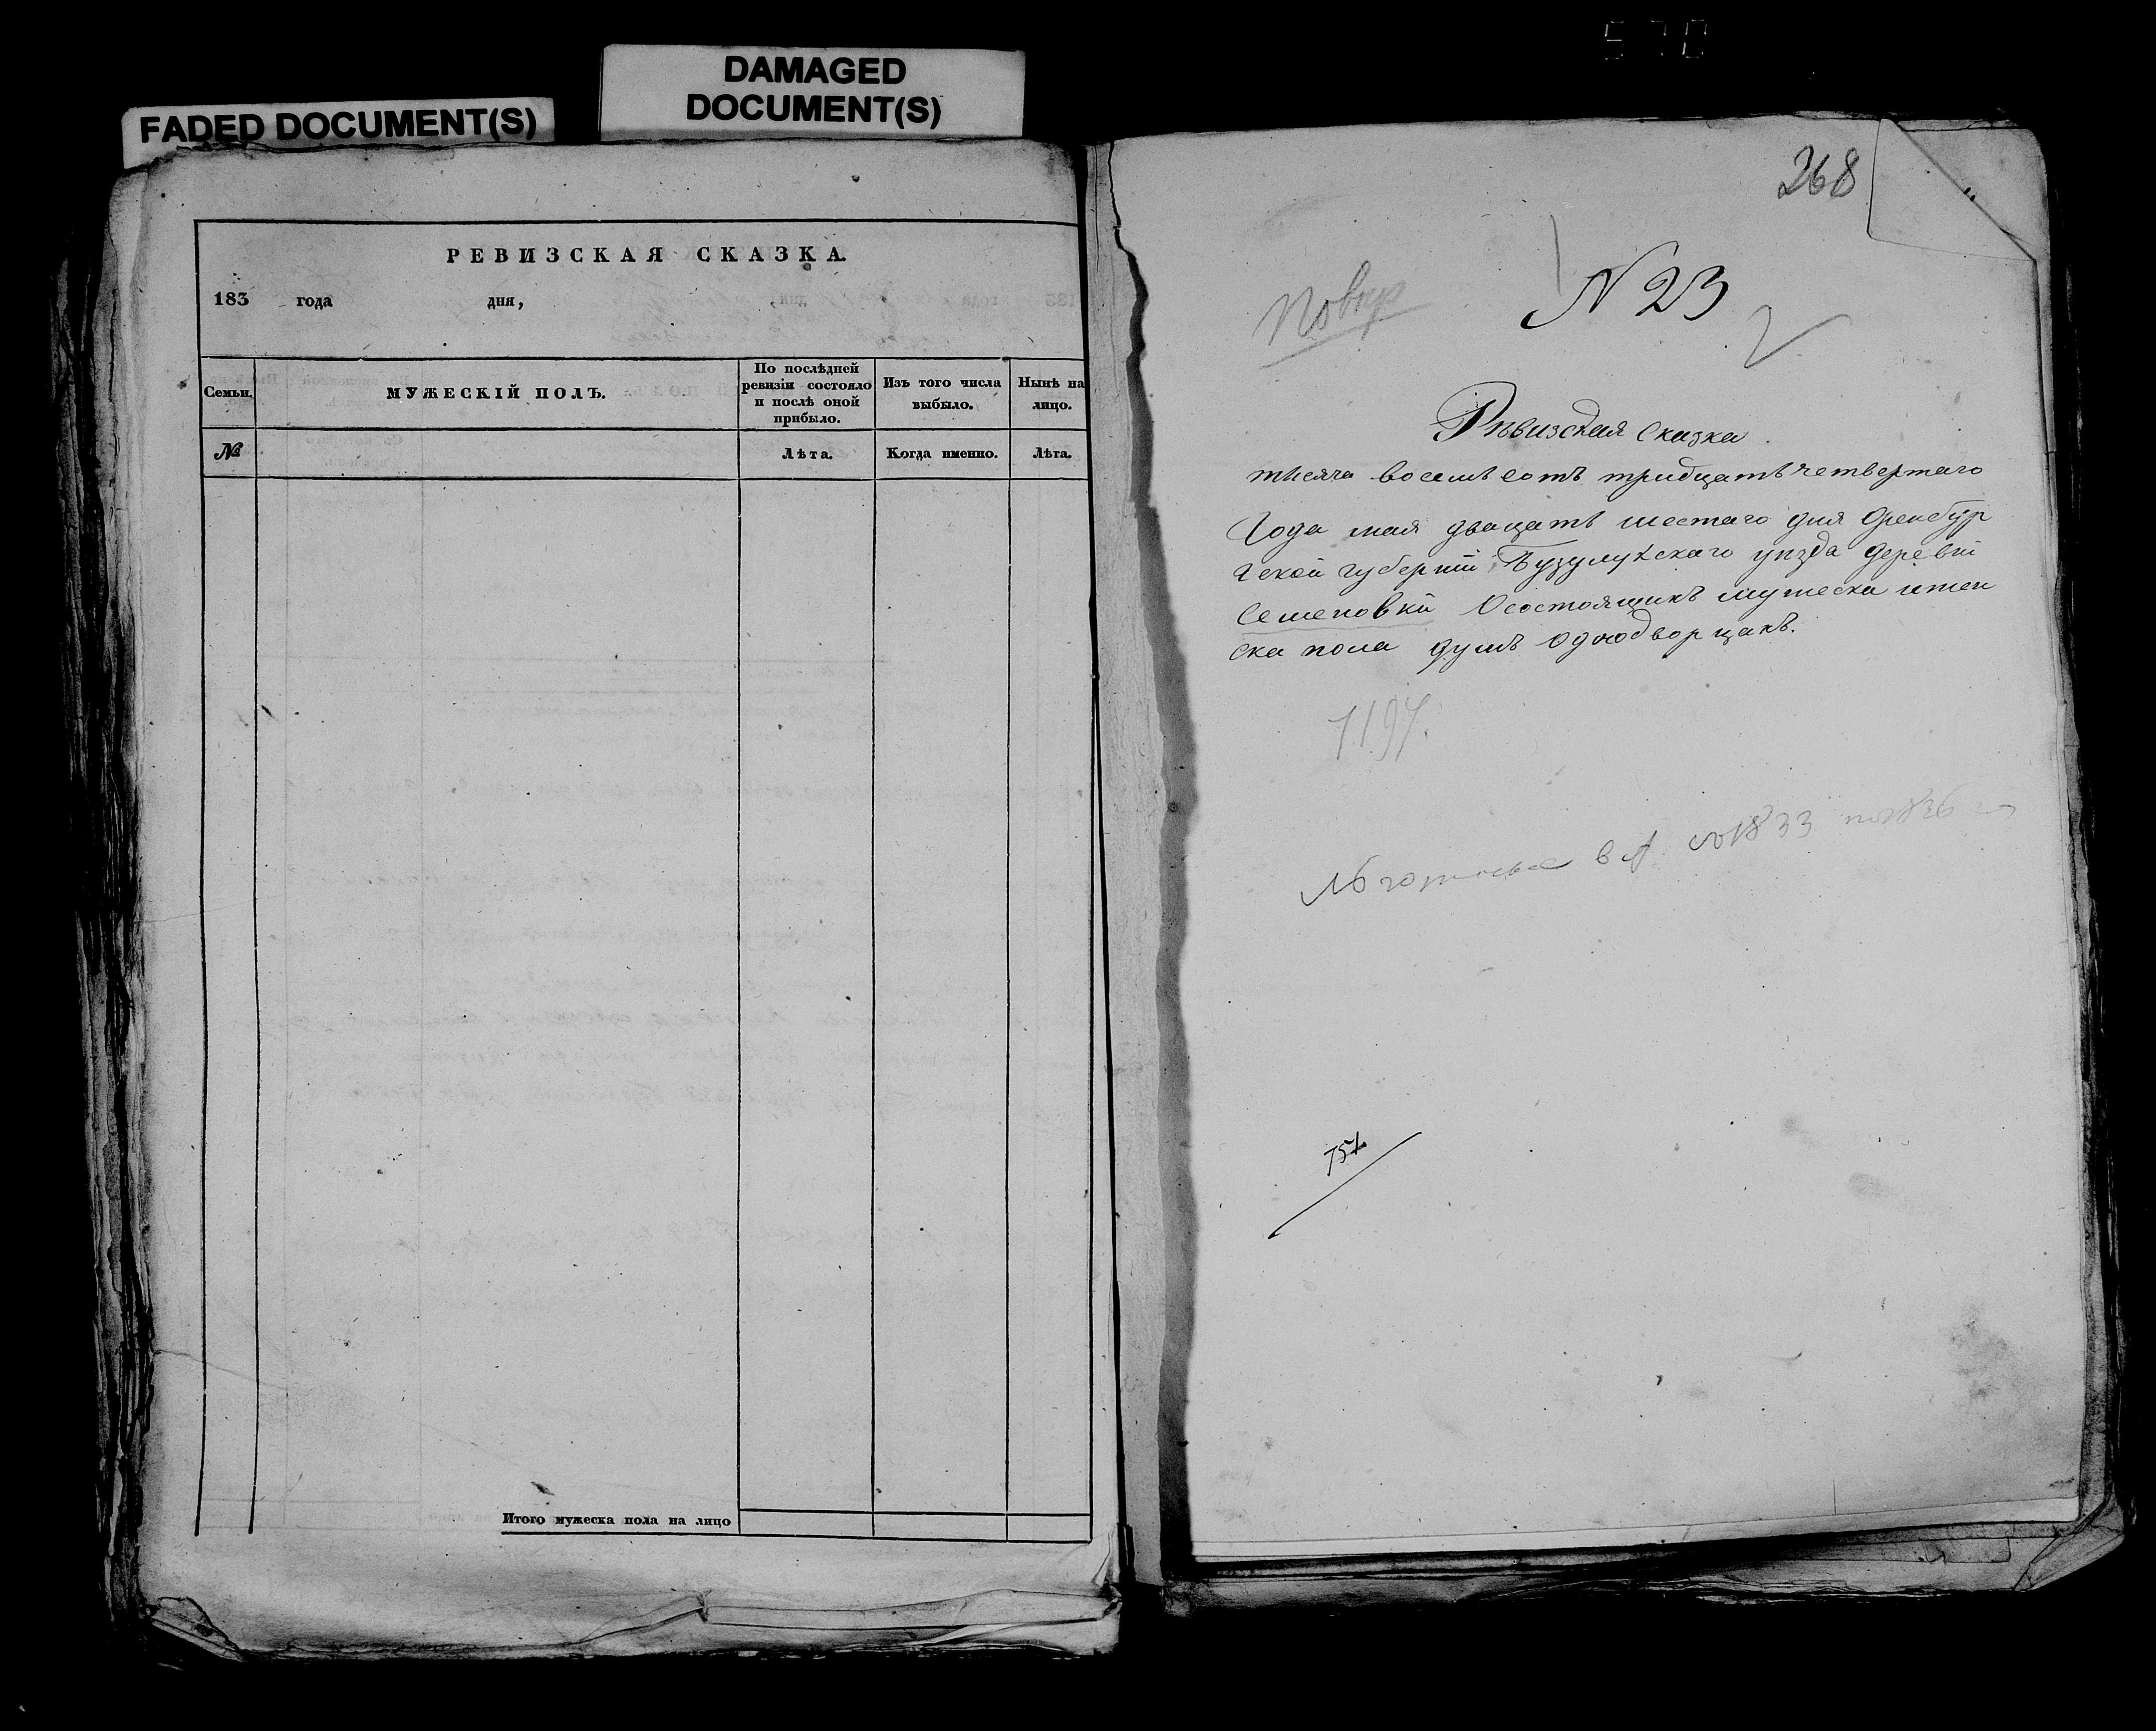 570
FADED DOCUMENT(S)
DAMAGED
DOCUMENT(S)
РЕВИЗСКАЯ СКАЗКА.
183 года дня,
Семьи.
МУЖЕСКІЙ ПОЛЪ.
По послѣдней
ревизіи состояло
и послѣ оной
прибыло.
Изъ того числа
выбыло.
Нынѣ на
лицо.
№
Лѣта.
Когда именно.
Лѣта.
Итого мужеска пола на лицо
268
N 23
Рѣвизская сказка
тысяча восемь сотъ тридцать четвертаго
Года мая двацать шестаго дня Оренбур
гской губерніи Бузулукскаго уѣзда деревни
Семеновки О состоящихъ мужеска и жен
ска пола душъ однодворцахъ.
1197.